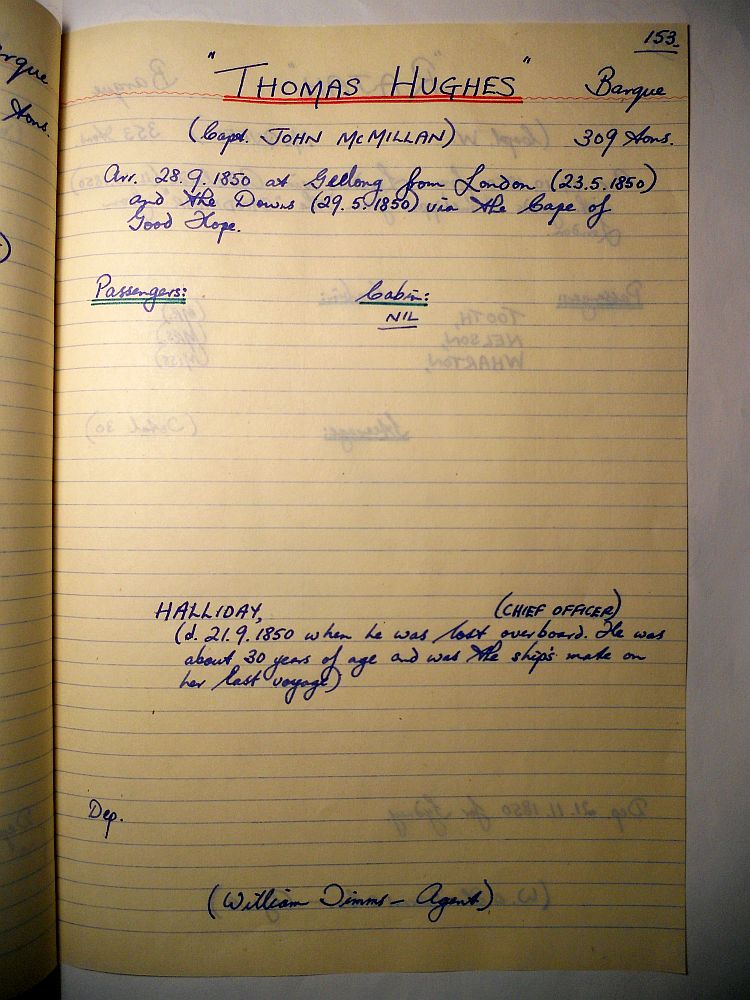 153.
"THOMAS HUGHES" Barque
(Capt. JOHN McMILLAN) 309 tons.
Arr. 28.9.1850 at Geelong from London (23.5.1850)
and the Downs (29.5.1850) via the Cape of
Good Hope.
Passengers: Cabin:
NIL
HALLIDAY, (CHIEF OFFICER)
(d. 21.9.1850 when he was lost overboard. He was
about 30 years of age and was the ship's mate on
her last voyage)
Dep.
(William Timms - Agent)